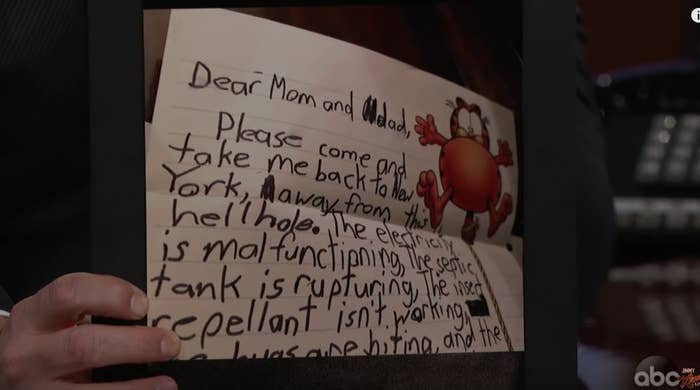 Dear Mom and dad,
Please come and
take me back to New
York, away from this
hellhole. The electricity
is malfunctioning, The septic
tank is rupturing, The insect
repellant isn't working,
bugs are biting, and the
abc